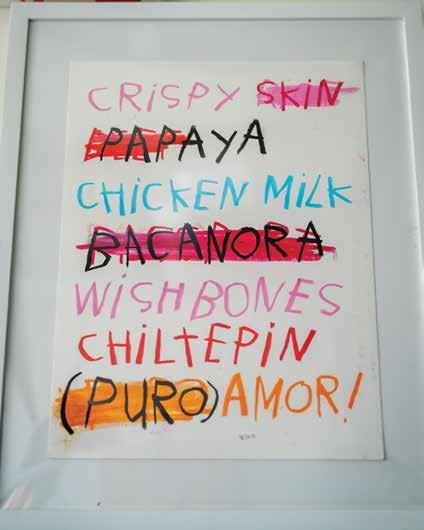 CRiSPY SKiN
PAPAYA
CHiCKEN MiLK
BACANORA
WiSHBONES
CHiLTEPiN
(PURO) AMOR!